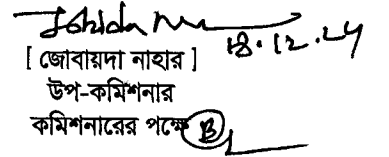 18.12.24
[ জোবায়দা নাহার ]
উপ-কমিশনার
কমিশনারের পক্ষে B